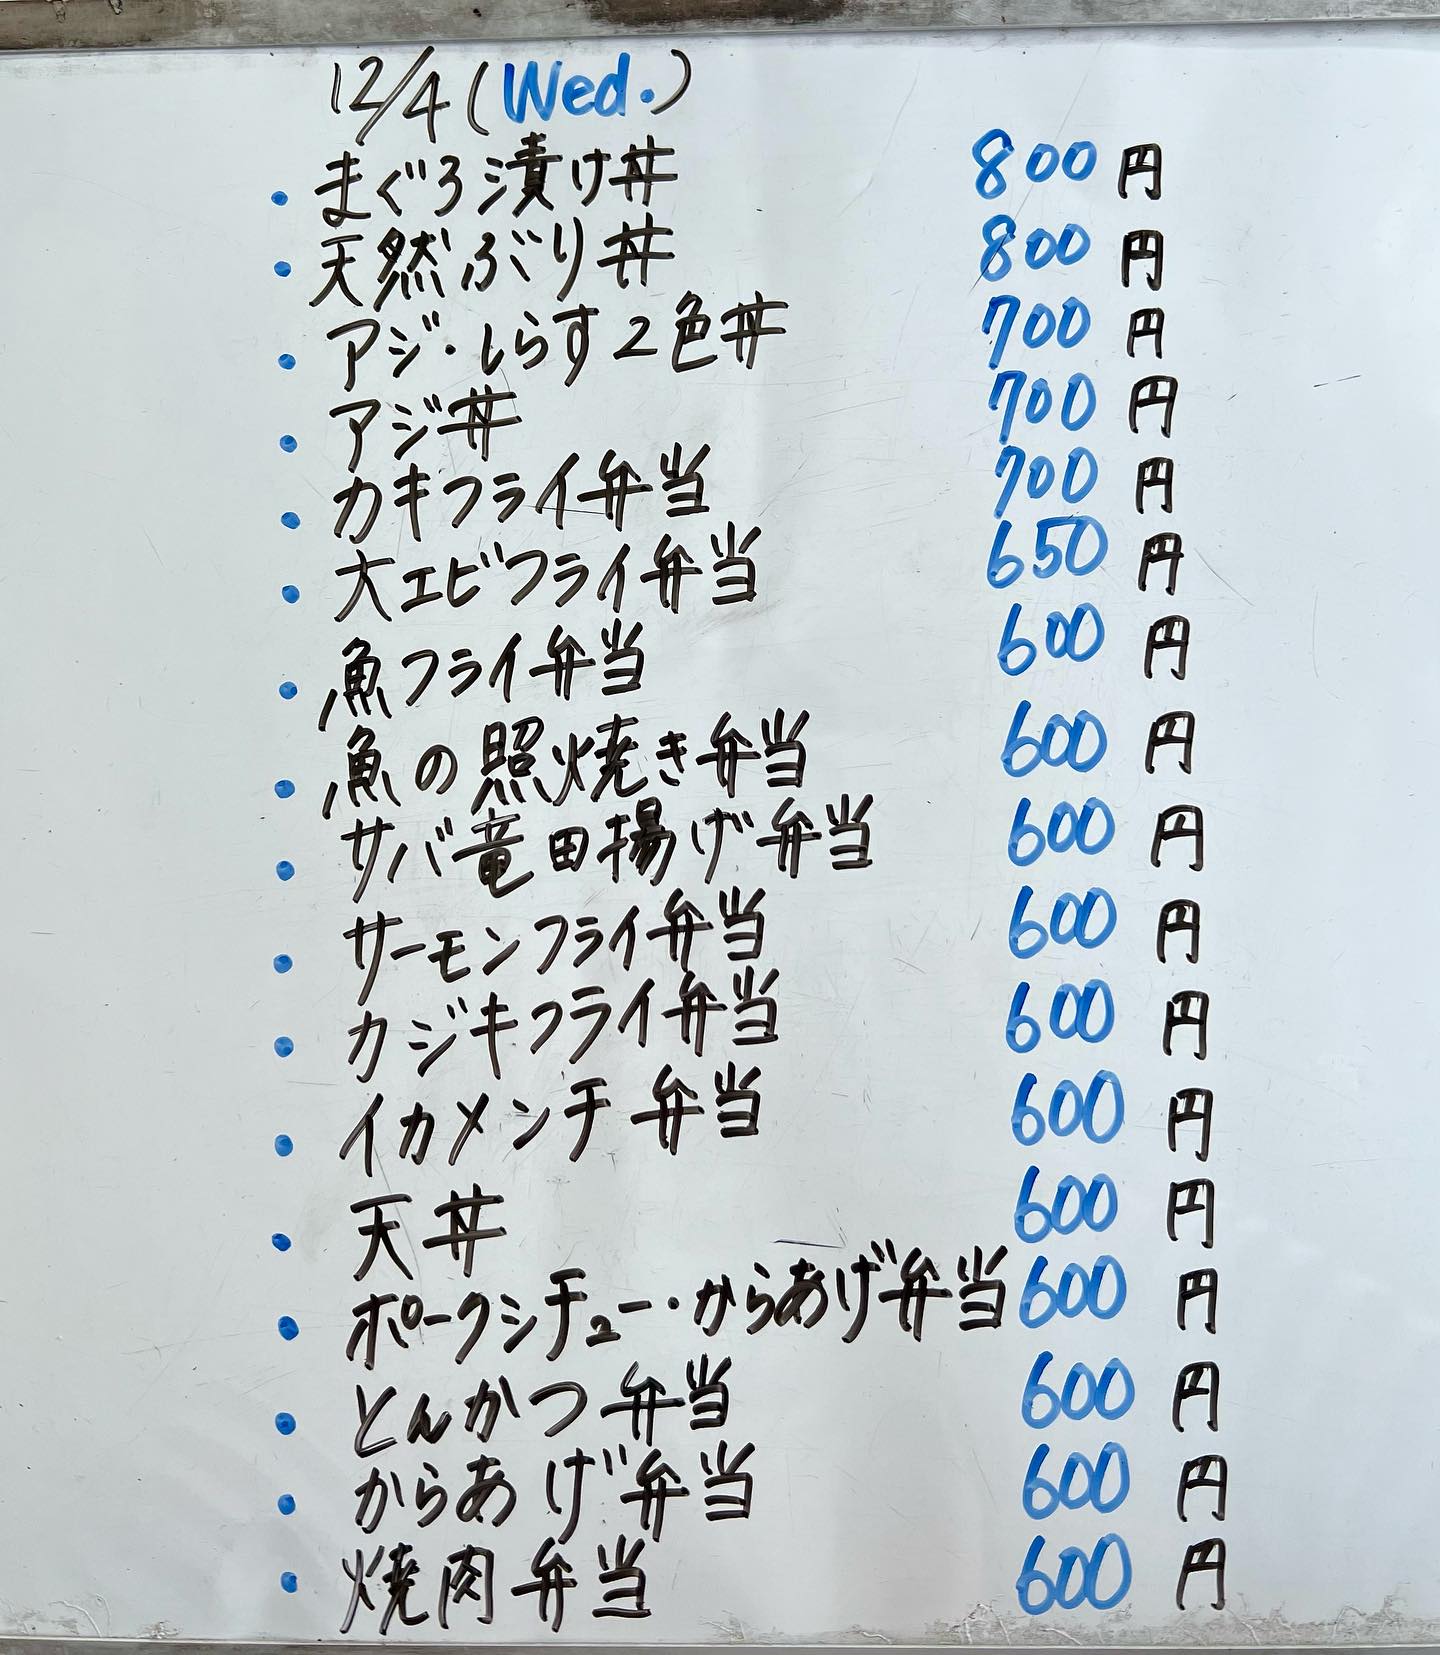 12/4(Wed.)
・まぐろ漬け丼 800円
・天然ぶり丼 800円
・アジ・しらす2色丼 700円
・アジ丼 700円
・カキフライ弁当 700円
・大エビフライ弁当 650円
・魚フライ弁当 600円
・魚の照焼き弁当 600円
・サバ竜田揚げ弁当 600円
・サーモンフライ弁当 600円
・カジキフライ弁当 600円
・イカメンチ弁当 600円
・天丼 600円
・ポークシチュー・からあげ弁当 600円
・とんかつ弁当 600円
・からあげ弁当 600円
・焼肉弁当 600円